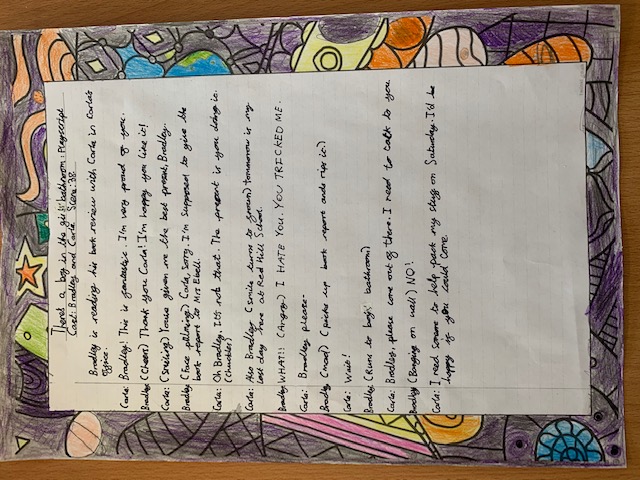 There's a boy in the girls' bathroom: Playscript
Cast: Bradley and Carla Scene: 38
Bradley is reading his book review with Carla in Carla's
office.
Carla: Bradley! This is fantastic. I'm very proud of you.
Bradley (Cheers) Thank you Carla! I'm happy you like it!
Carla: (Smiling) You've given me the best present, Bradley.
Bradley (Face palming) Carla, Sorry. I'm supposed to give the
book report to Mrs Ebell.
Carla: Oh Bradley. It's not that. The present is you doing it.
(Chuckles)
Carla: Also Bradley (smile turns to frown) tomorrow is my
last day here at Red Hill School.
Bradley WHAT!! (Angry) I HATE YOU. YOU TRICKED ME.
Carla: Bradley please-
Bradley (mad) (picks up book report and rips it.)
Carla: Wait!
Bradley (Runs to boys bathroom)
Carla: Bradley, please come out of there. I need to talk to you
Bradley (Banging on wall) NO!
Carla: I need someone to help pack my stuff on Saturday. I'd be
happy if you could come